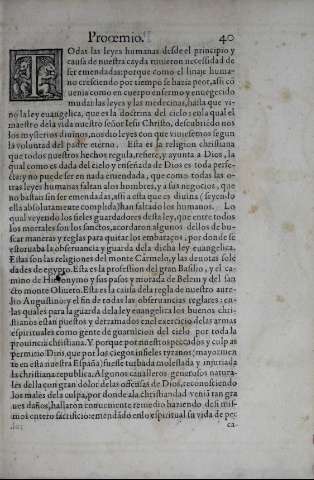 Prooemio.
40
TOdas las leyes humanas desde el principio y
causa de nuestra cayda tuuieron necessidad de
ser emendadas: porque como el linaje huma-
no cresciendo por tiempo se hazia peor, assi cō
uenia como en cuerpo enfermo y enuegecido
mudar las leyes y las medecinas, hasta que vi-
no la ley euangelica, que es la doctrina del cielo con la qual el
maestro de la vida nuestro Señor Iesu Christo, descubriēdo nos
los mysterios diuinos, nos dio leyes con que viuiessemos segun
la voluntad del padre eterno. Esta es la religion christiana
que todos nuestros hechos regula, refiere, y ayunta a Dios, la
qual como es dada del cielo y enseñada de Dios es toda perfe-
cta: y no puede ser en nada emendada, que como todas las o-
tras leyes humanas faltan a los hombres, y a sus negocios, que
no bastan sin ser emendadas, assi a esta que es diuina (seyendo
ella absolutamente complida) han faltado los humanos. Lo
qual veyendo los fieles guardadores desta ley, que entre todos
los mortales son los sanctos, acordaron algunos dellos de bus-
car maneras y reglas para quitar los embaraços, por donde se
estoruaba la obseruancia y guarda de la dicha ley euangelica.
Estas son las religiones del monte Carmelo, y las deuotas sole
dades de egypto. Esta es la profession del gran Basilio, y el ca-
mino de Hieronymo y sus paſos y morada de Belem y del san
cto monte Oliuete. Esta es la causa de la regla de nuestro aure-
lio Augustino: y el fin de todas las obseruancias reglares: en-
las quales para la guarda de la ley euangelica los buenos chri-
stianos estan puestos y derramados en el exercicio de las armas
espirituales como gente de guarnicion del cielo por toda la
prouincia christiana. Y porque por nuestros peccados y culpas
permitio Dios, que por los ciegos infieles tyranos, mayormen
te en esta nuestra España, fuesse turbada molestada y injuriada
la christiana republica. Algunos caualleros generosos natura-
les della con gran dolor de las offensas de Dios, reconosciendo
los males de la culpa, por donde a la christiandad venia tan gra
ues daños, hallaron conueniente remedio haziendo de si mis-
mos entero sacrificio: emendādo en lo espiritual su vida de pec
ca-